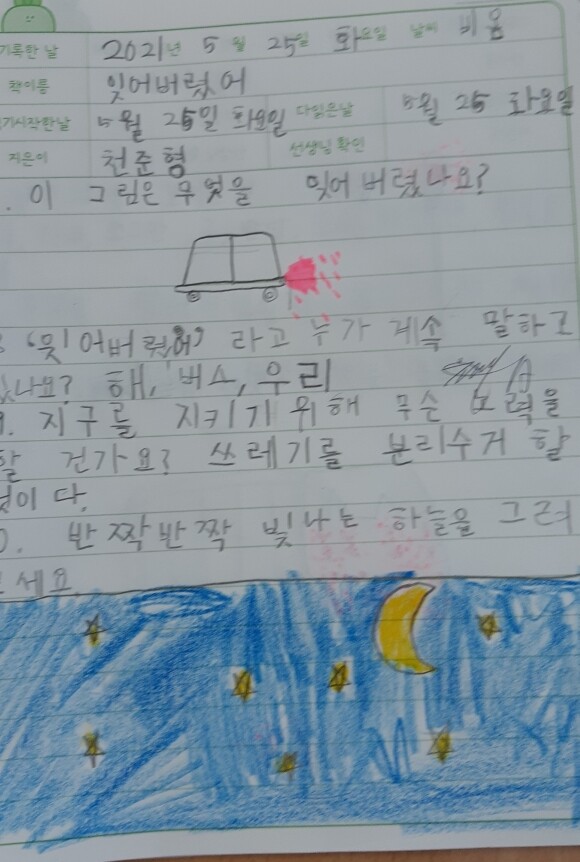 기록한 날 2021년 5월 25일 화요일 날씨 비옴
책이름 잊어버렸어
기시작한날 5월 25일 화요일 다읽은날 5월 25 화요일
지은이 천준형 선생님 확인
. 이 그림은 무엇을 잊어 버렸나요?
"잊어버렸어" 라고 누가 계속 말하고
있나요? 해, 버스, 우리
9. 지구를 지키기 위해 무슨 노력을
할 건가요? 쓰레기를 분리수거 할
것이다.
0. 반짝반짝 빛나는 하늘을 그려
세요